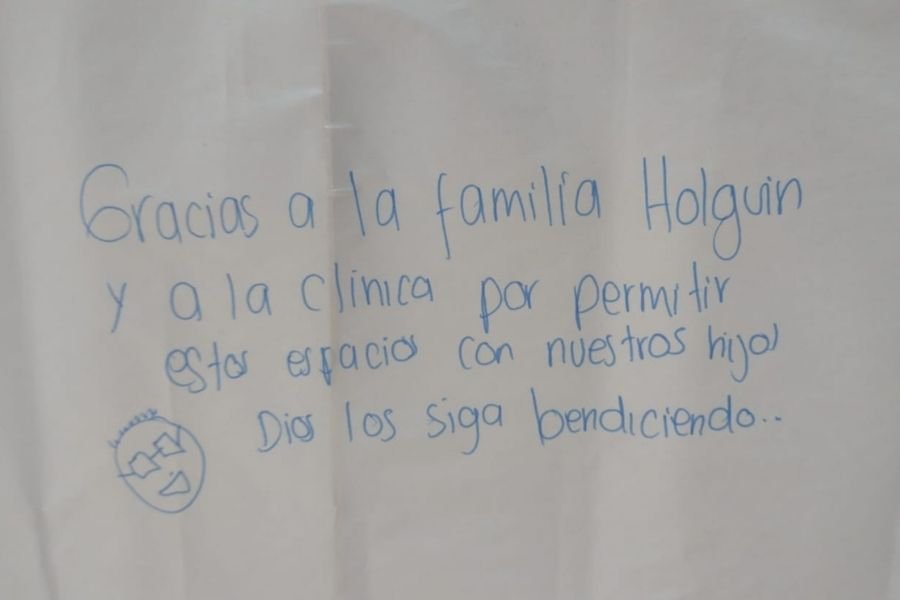 Gracias a la familia Holguin
y a la clinica por permitir
estos espacios con nuestros hijos
Dios los siga bendiciendo..